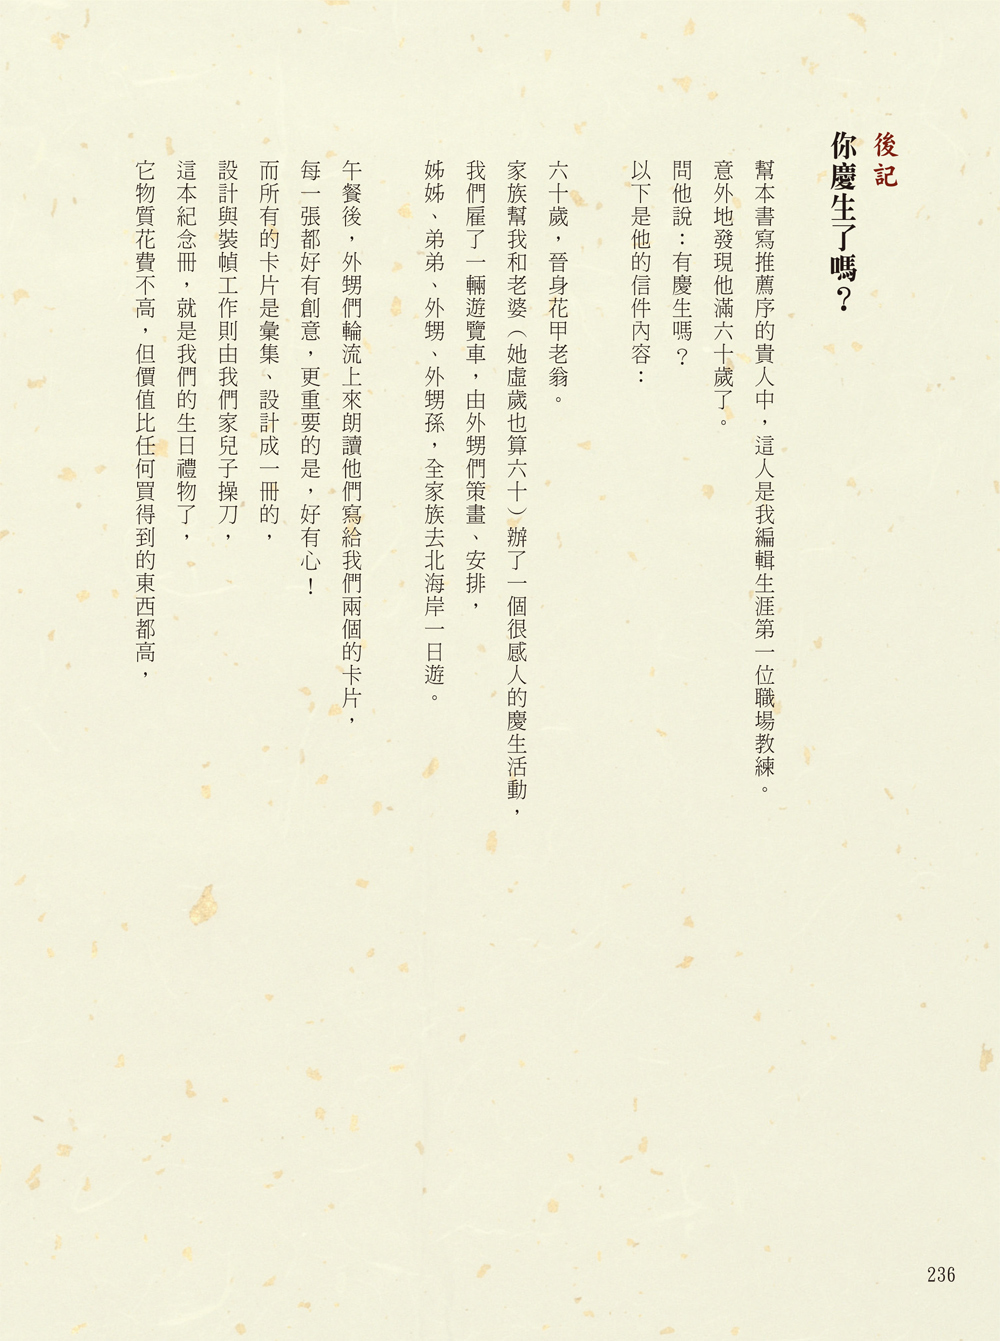 後記
你慶生了嗎？
幫本書寫推薦序的貴人中，這人是我編輯生涯第一位職場教練。
意外地發現他滿六十歲了。
問他說：有慶生嗎？
以下是他的信件內容：
六十歲，晉身花甲老翁。
家族幫我和老婆（她虛歲也算六十）辦了一個很感人的慶生活動，
我們雇了一輛遊覽車，由外甥們策畫、安排，
姊姊、弟弟、外甥、外甥孫，全家族去北海岸一日遊。
午餐後，外甥們輪流上來朗讀他們寫給我們兩個的卡片，
每一張都好有創意，更重要的是，好有心！
而所有的卡片是彙集、設計成一冊的，
設計與裝幀工作則由我們家兒子操刀，
這本紀念冊，就是我們的生日禮物了，
它物質花費不高，但價值比任何買得到的東西都高，
236